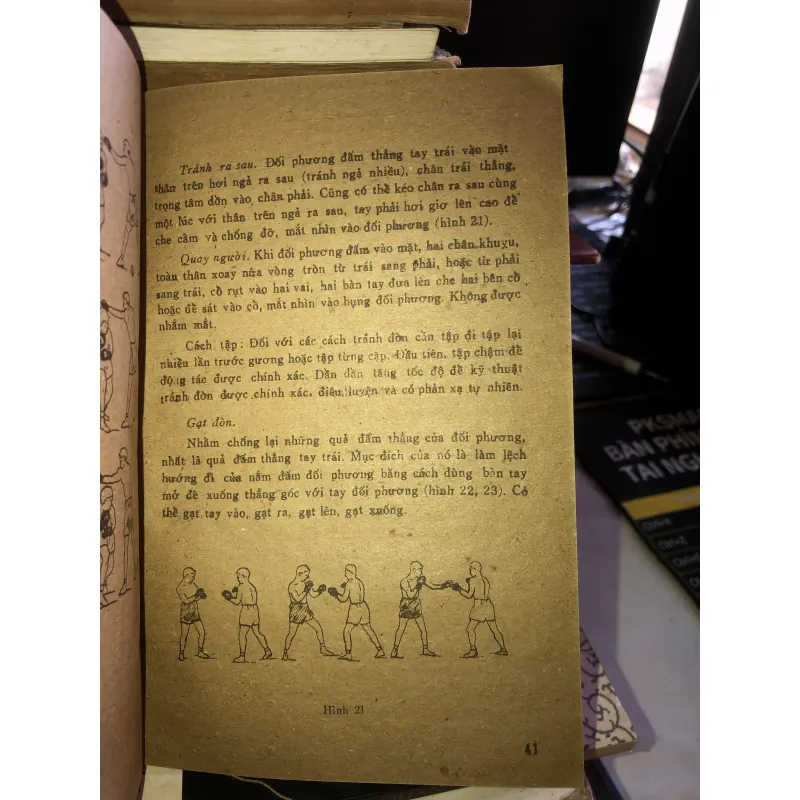 Tránh ra sau. Đối phương đấm thẳng tay trái vào mặt
thân trên hơi ngả ra sau (tránh ngả nhiều), chân trái thẳng,
trọng tâm dồn vào chân phải. Cũng có thể kéo chân ra sau cùng
một lúc với thân trên ngả ra sau, tay phải hơi giơ lên cao để
che cằm và chống đỡ, mắt nhìn vào đối phương (hình 21).
Quay người. Khi đối phương đấm vào mặt, hai chân khuỵu,
toàn thân xoay nửa vòng tròn từ trái sang phải, hoặc từ phải
sang trái, cổ rụt vào hai vai, hai bàn tay đưa lên che hai bên cổ
hoặc để sát vào cổ, mắt nhìn vào bụng đối phương. Không được
nhắm mắt.
Cách tập: Đối với các cách tránh đòn cần tập đi tập lại
nhiều lần trước gương hoặc tập từng cặp. Đầu tiên, tập chậm để
động tác được chính xác. Dần dần tăng tốc độ để kỹ thuật
tránh đòn được chính xác, điêu luyện và có phản xạ tự nhiên.
Gạt đòn.
Nhằm chống lại những quả đấm thẳng của đối phương,
nhất là quả đấm thẳng tay trái. Mục đích của nó là làm lệch
hướng đi của nắm đấm đối phương bằng cách dùng bàn tay
mở đè xuống thẳng góc với tay đối phương (hình 22, 23). Có
thể gạt tay vào, gạt ra, gạt lên, gạt xuống.
Hình 21
41
PKSMA
BÀN PHÍ
TAI NG